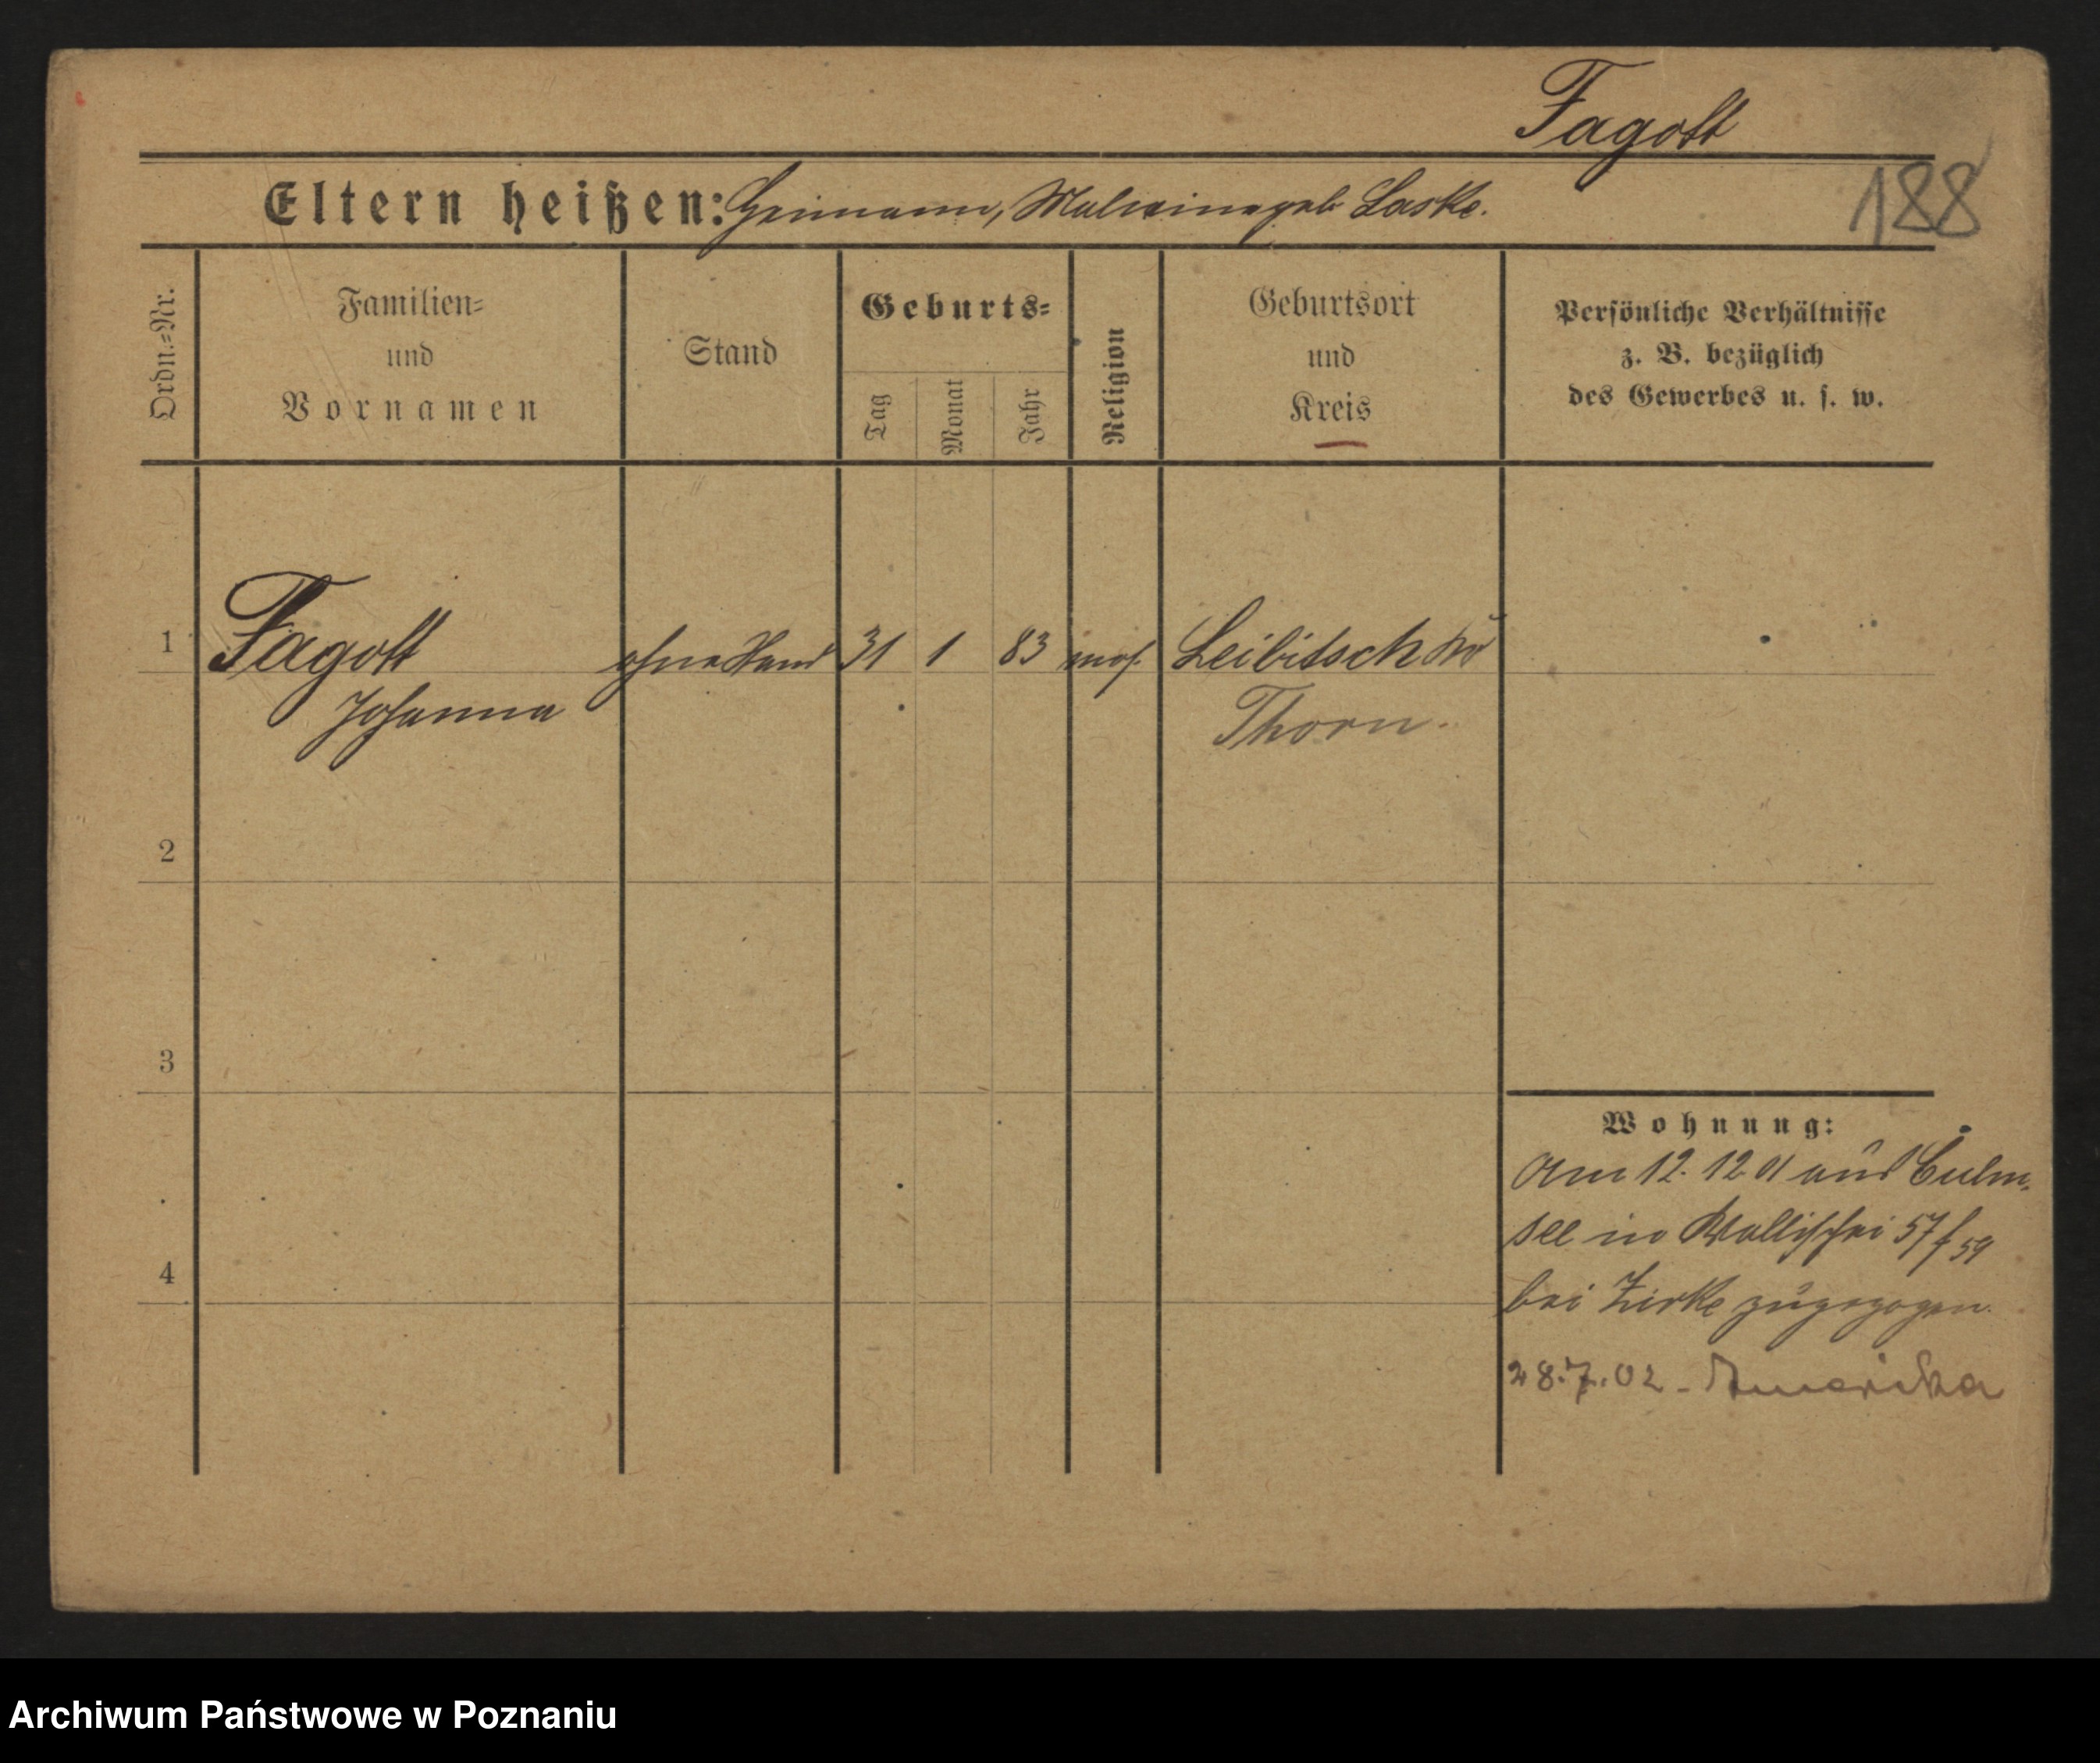 Fagott
188
Eltern heißen: Heimann, Malwine geb Laske.
Ordn.=Nr.
Familien=
und
Vornamen
Stand
Geburts=
Tag
Monat
Jahr
Religion
Geburtsort
und
Kreis
Persönliche Verhältnisse
z. B. bezüglich
des Gewerbes u. s. w.
1 Fagott ohne Stand 31 1 83 mos. Leibitsch Kr
Johanna Thorn.
2
3
4
Wohnung:
Am 12. 12 01 aus Culm-
see in Wallischei 57/59
bei Zirke zugezogen.
28.7.02 - Amerika
Archiwum Państwowe w Poznaniu